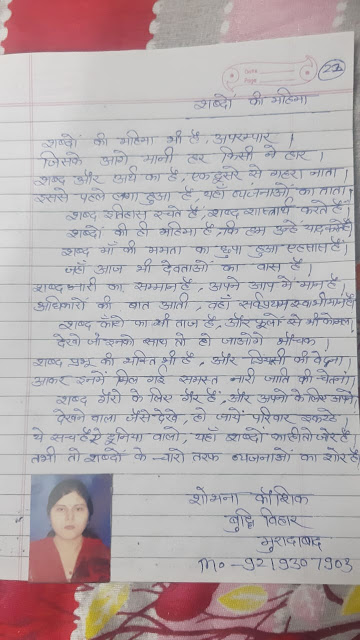 Date
Page
22
शब्दों की महिमा
शब्दों की महिमा भी है, अपरम्पार ।
जिसके आगे मानी हर किसी ने हार ।
शब्द और अर्थ का है, एक दूसरे से गहरा नाता ।
इससे पहले लगा हुआ है, यहाँ व्यंजनाओं का तांता ।
शब्द इतिहास रचते है, शब्द शास्त्रार्थ करते है ।
शब्दों की ही महिमा है, कि हम उन्हें याद करते है ।
शब्द माँ की ममता का छुपा हुआ एहसास है ।
जहाँ आज भी देवताओं का वास है ।
शब्द नारी का सम्मान है, अपने आप में मान है ।
अधिकारों की बात आती, वहाँ सर्वप्रथम स्वाभीमान है ।
शब्द काँटो का भी ताज है, और फूलों से भी कोमल ।
देखो जो इनको साथ तो हो जाओगे भौंचक ।
शब्द प्रभू की भक्ति भी है, और की वेदना ।
आकर इनमें मिल गई समस्त नारी जाति की चेतना ।
शब्द गैरों के लिए गैर है, और अपनो के लिए अपने
देखने वाला जैसे देखे, हो जायें परिवार इकट्ठे
ये सच है ऐ दुनिया वालो, यहाँ शब्दों का ही तो जोर है
तभी तो शब्दों के चारो तरफ व्यंजनाओं का शोर है
शोभना कौशिक
बुद्धि विहार
मुरादाबाद
Mo - 9219307903